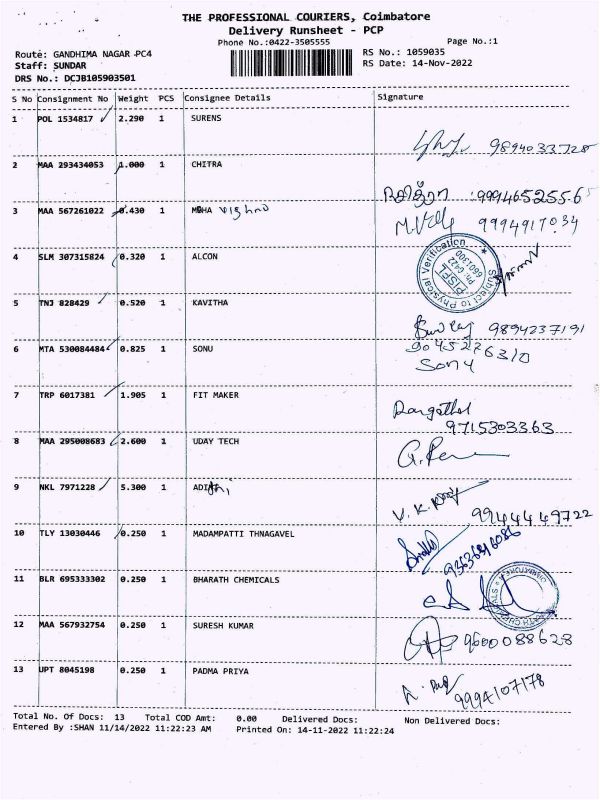 THE PROFESSIONAL COURIERS, Coimbatore
Delivery Runsheet - PCP
Phone No.:0422-3505555 Page No.:1
Route: GANDHIMA NAGAR PC4 RS No.: 1059035
Staff: SUNDAR RS Date: 14-Nov-2022
DRS No.: DCJB105903501
S No Consignment No Weight PCS Consignee Details Signature
1 POL 1534817 2.290 1 SURENS
9894033728
2 MAA 293434053 1.000 1 CHITRA
9994652556
3 MAA 567261022 0.430 1 MEHA Vishnu
9994917034
4 SLM 307315824 0.320 1 ALCON
Subject to Physical Verification
PISFL
Ph: 0422
5 TNJ 828429 0.520 1 KAVITHA
9894237191
6 MTA 530084484 0.825 1 SONU
9045276310
Sony
7 TRP 6017381 1.905 1 FIT MAKER
9715303363
8 MAA 295008683 2.600 1 UDAY TECH
9 NKL 7971228 5.300 1 ADI
9944449722
10 TLY 13030446 0.250 1 MADAMPATTI THNAGAVEL
11 BLR 695333302 0.250 1 BHARATH CHEMICALS
12 MAA 567932754 0.250 1 SURESH KUMAR
9600088628
13 UPT 8045198 0.250 1 PADMA PRIYA
9994107178
Total No. Of Docs: 13 Total COD Amt: 0.00 Delivered Docs: Non Delivered Docs:
Entered By :SHAN 11/14/2022 11:22:23 AM Printed On: 14-11-2022 11:22:24